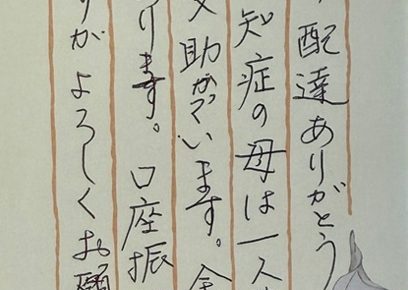 配達ありがとう
知症の母は一人
助かっています。
ります。口座振
がよろしくお願